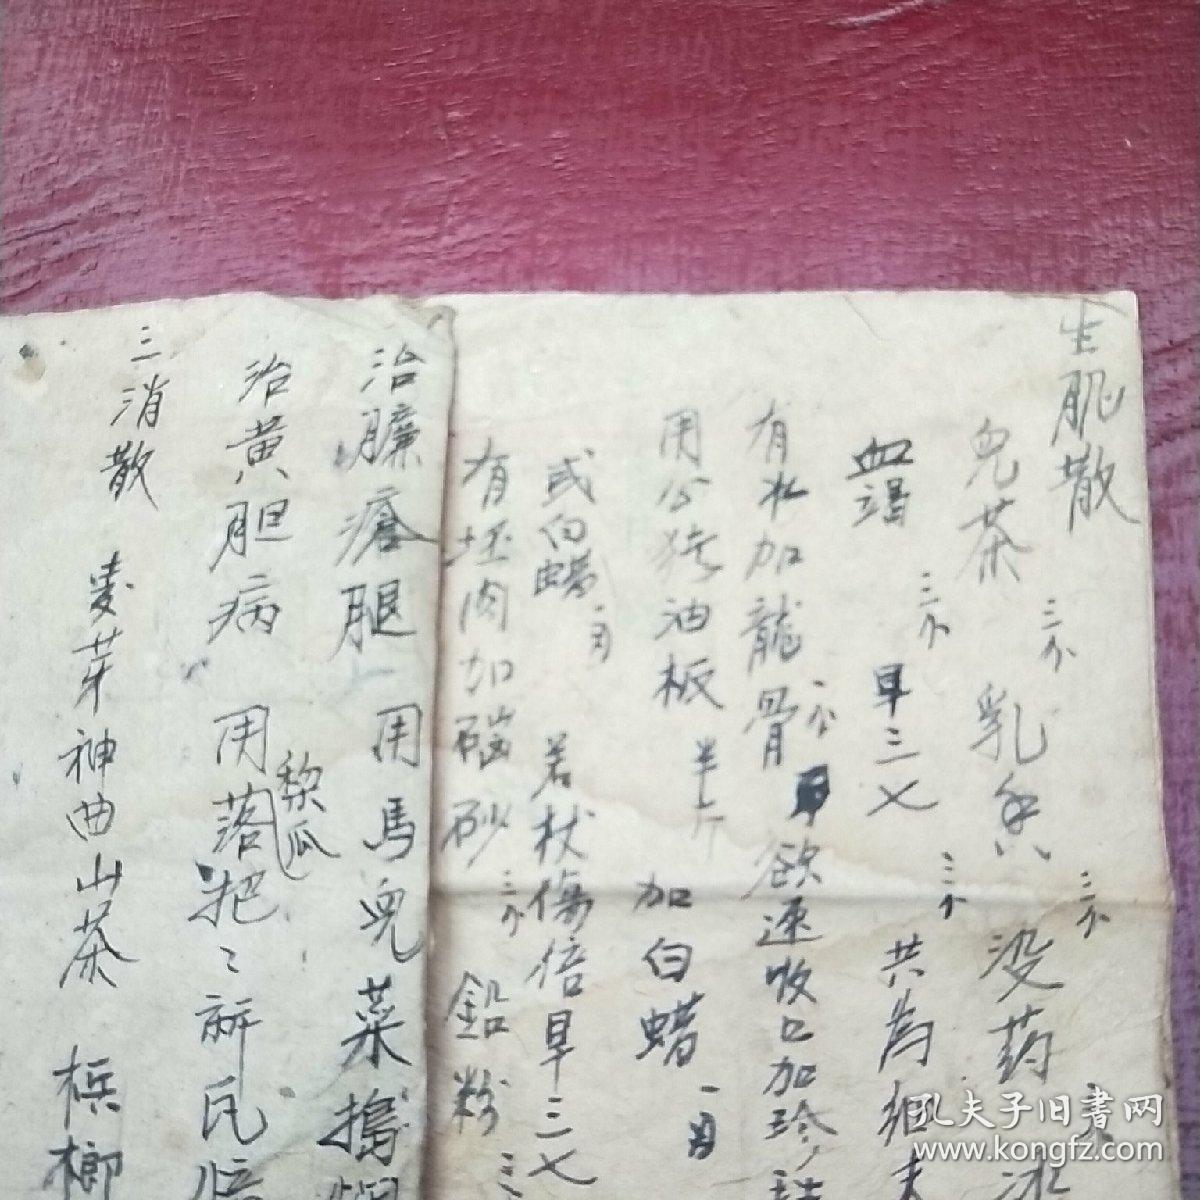 生肌散
兒茶 三个 乳香 三个 没药 冰
血竭 三个 旱三七 三个 共為細末
有水加龍骨 一个 欲速收口加珍珠
用公猪油板 半斤 加白蜡 一両
或白蜡 一両 若杖傷倍旱三七
有坯肉加硇砂 三个 鉛粉 三
治臁瘡腿 用馬兒菜搗爛
治黄胆病 用落把〻新瓦焙
黎瓜
三消散 麦芽神曲山茶 槟榔
孔夫子旧書网
www.kongfz.com